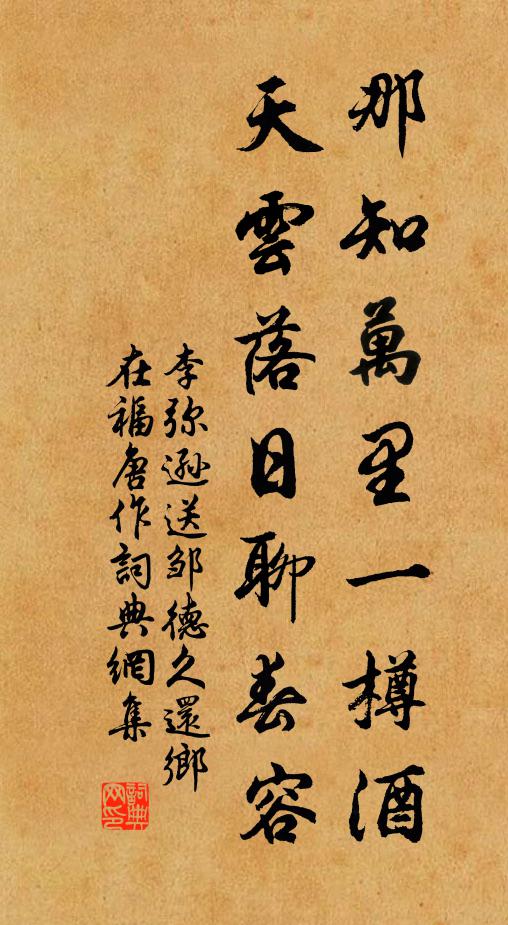 那知萬里一樽酒
天雲落日聊春容
李弥遜送邹德久還鄉
在福唐作詞典網集
詞典
网印